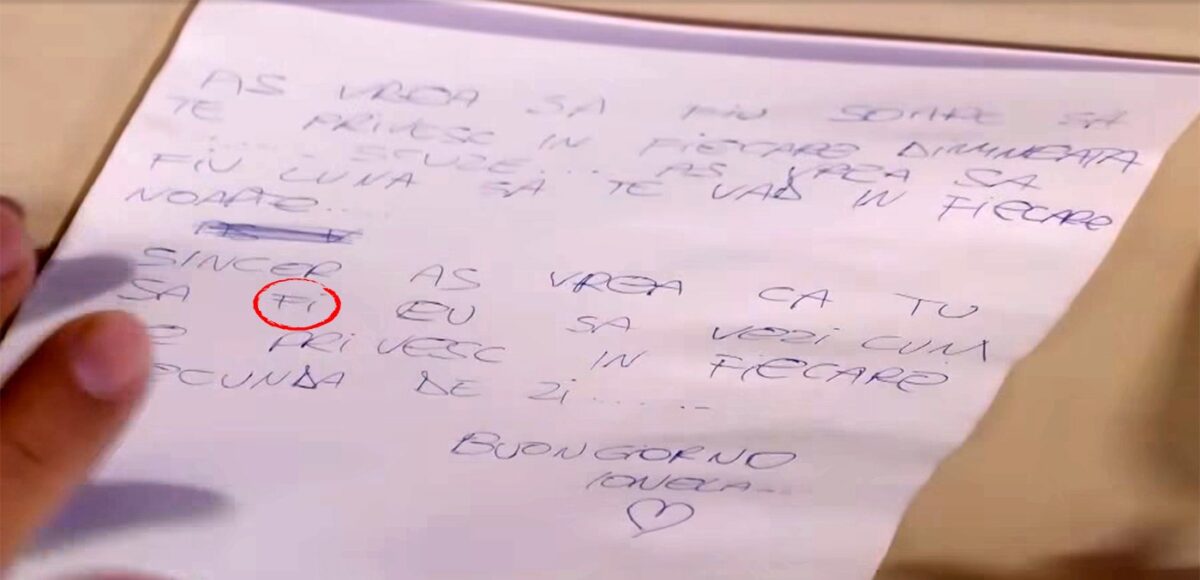 AS VREA SA FIU SOARE SA
TE PRIVESC IN FIECARE DIMINEATA
...... SCUZE.... AS VREA SA
FIU LUNA SA TE VAD IN FIECARE
NOAPTE....
SINCER AS VREA CA TU
SA Fi EU SA VEZI CUM
PRIVESC IN FIECARE
DE Zi......
BUONGIORNO
IONELA...